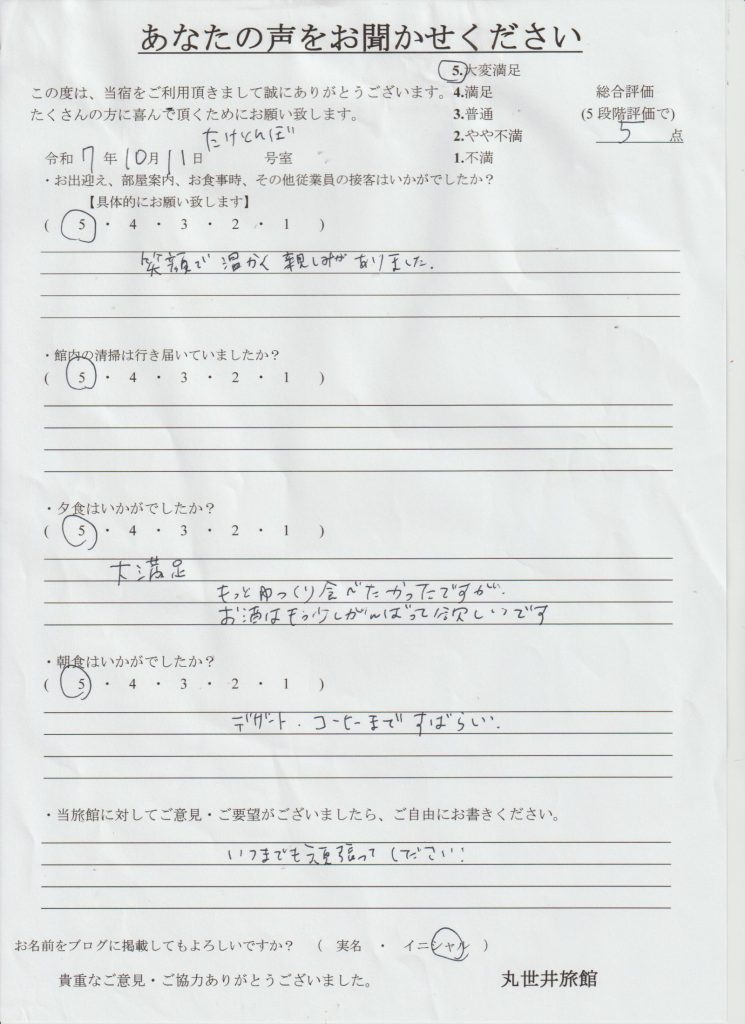 あなたの声をお聞かせください
5.大変満足
この度は、当宿をご利用頂きまして誠にありがとうございます。 4.満足 総合評価
たくさんの方に喜んで頂くためにお願い致します。 3.普通 (5段階評価で)
2.やや不満 5 点
たけとんぼ
令和 7 年 10月 11日 号室 1.不満
・お出迎え、部屋案内、お食事時、その他従業員の接客はいかがでしたか？
【具体的にお願い致します】
( 5 ・ 4 ・ 3 ・ 2 ・ 1 )
笑顔で温かく親しみがありました.
・館内の清掃は行き届いていましたか？
( 5 ・ 4 ・ 3 ・ 2 ・ 1 )
・夕食はいかがでしたか？
( 5 ・ 4 ・ 3 ・ 2 ・ 1 )
大満足
もっとゆっくり食べたかったですが.
お酒はもう少しがんばって欲しいです
・朝食はいかがでしたか？
( 5 ・ 4 ・ 3 ・ 2 ・ 1 )
デザート・コーヒーまですばらしい.
・当旅館に対してご意見・ご要望がございましたら、ご自由にお書きください。
いつまでも頑張ってください!
お名前をブログに掲載してもよろしいですか？ ( 実名 ・ イニシャル )
貴重なご意見・ご協力ありがとうございました。 丸世井旅館